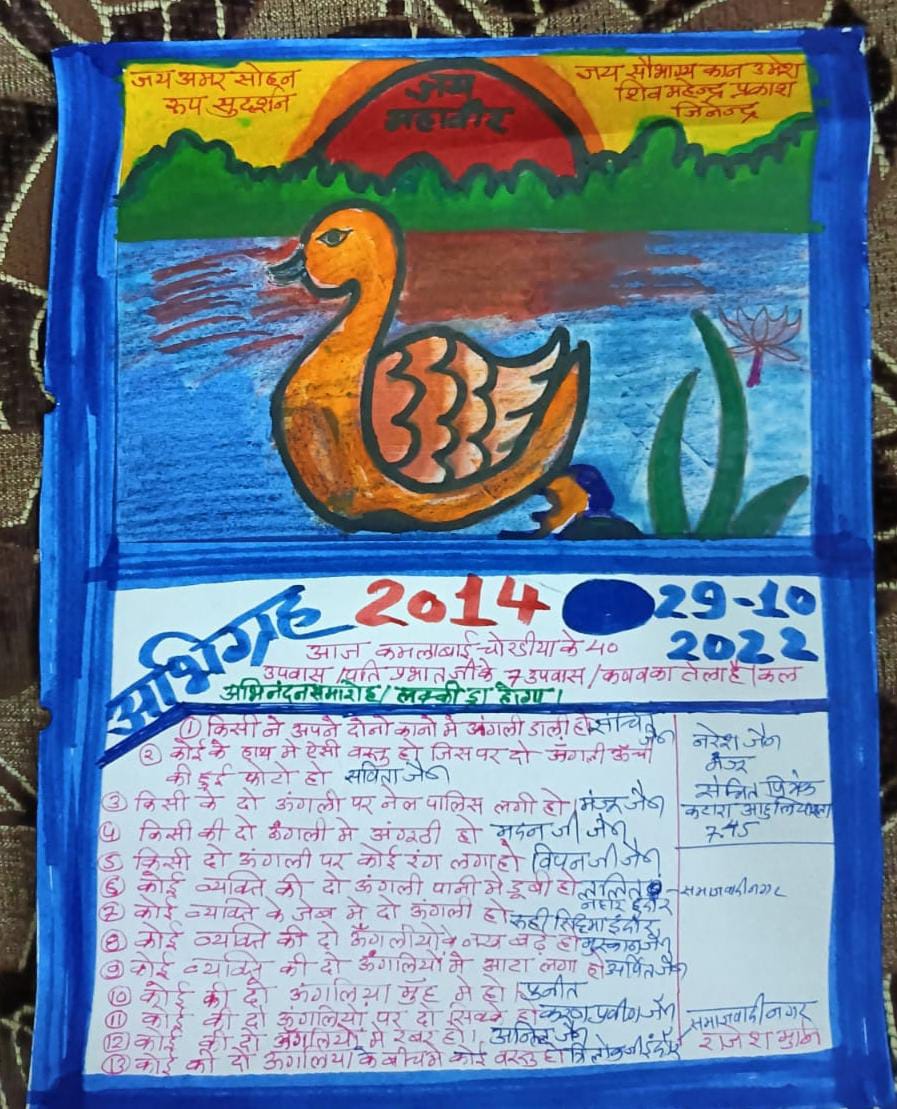 जय अमर सोहन
रूप सुदर्शन
जय
महावीर
जय सौभाग्य कान उमेश
शिव महेन्द्र प्रकाश
जिनेन्द्र
अभिग्रह 2014
29-10
2022
आज कमलाबाई चोरडीया के 40
उपवास / प्रति प्रभात जी के 7 उपवास / का तेला है। कल
अभिनंदन समारोह / लक्की ड्रा होगा।
① किसी ने अपने दोनो कानो मे अंगली डाली हो जैन
② कोई के हाथ मे ऐसी वस्तु हो जिस पर दो ऊँगली ऊँची
की हुई फोटो हो सविता जैन
③ किसी के दो ऊंगली पर नेल पालिस लगी हो। मंजू जैन
④ किसी की दो ऊंगली मे अंगूठी हो मदन जी जैन
⑤ किसी दो ऊंगली पर कोई रंग लगा हो विपन जी जैन
⑥ कोई व्यक्ति की दो ऊंगली पानी मे डूबी हो ललित
नाहर इंदौर
⑦ कोई व्यक्ति के जेब मे दो ऊंगली हो रूही रिद्धिमा इंदौर
⑧ कोई व्यक्ति की दो ऊँगलीयो के बढ़े हो मुस्कान जैन
⑨ कोई व्यक्ति की दो ऊँगलियों मे आटा लगा हो अर्पित जैन
⑩ कोई की दो ऊंगलिया मुँह मे हो। पुनीत
⑪ कोई की दो ऊंगलियों पर दो सिक्के हो करुणा प्रवीण जैन
⑫ कोई की दो ऊंगलियों मे रबर हो। अनिल जैन
⑬ कोई की दो ऊंगलिया के बीच मे कोई वस्तु हो त्रिलोक जी इंदौर
नरेश जैन
मंजू
कटारा
7.45
समाजवादी नगर
समाजवादी नगर
राजेश मुनि